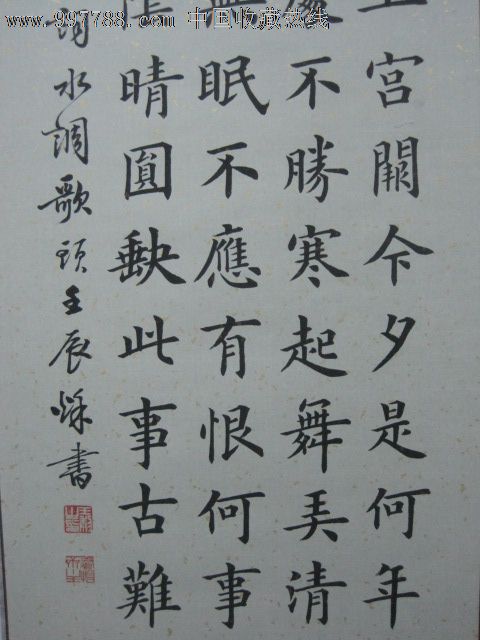 www.997788.com 中国收藏热线
宮闕今夕是何年
不勝寒起舞弄清
眠不應有恨何事
晴圓缺此事古難
詞水調歌頭壬辰秋書